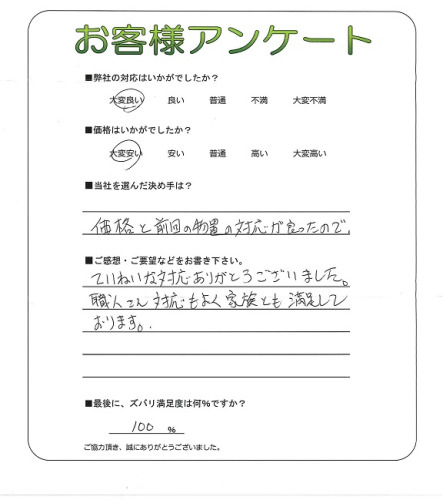 お客様アンケート
■弊社の対応はいかがでしたか?
大変良い 良い 普通 不満 大変不満
■価格はいかがでしたか?
大変安い 安い 普通 高い 大変高い
■当社を選んだ決め手は?
価格と前回の物置の対応が良ったので、
■ご感想・ご要望などをお書き下さい。
ていねいな対応ありがとうございました。
職人さん対応もよく家族とも満足して
おります。
■最後に、ズバリ満足度は何%ですか?
100 %
ご協力頂き、誠にありがとうございました。